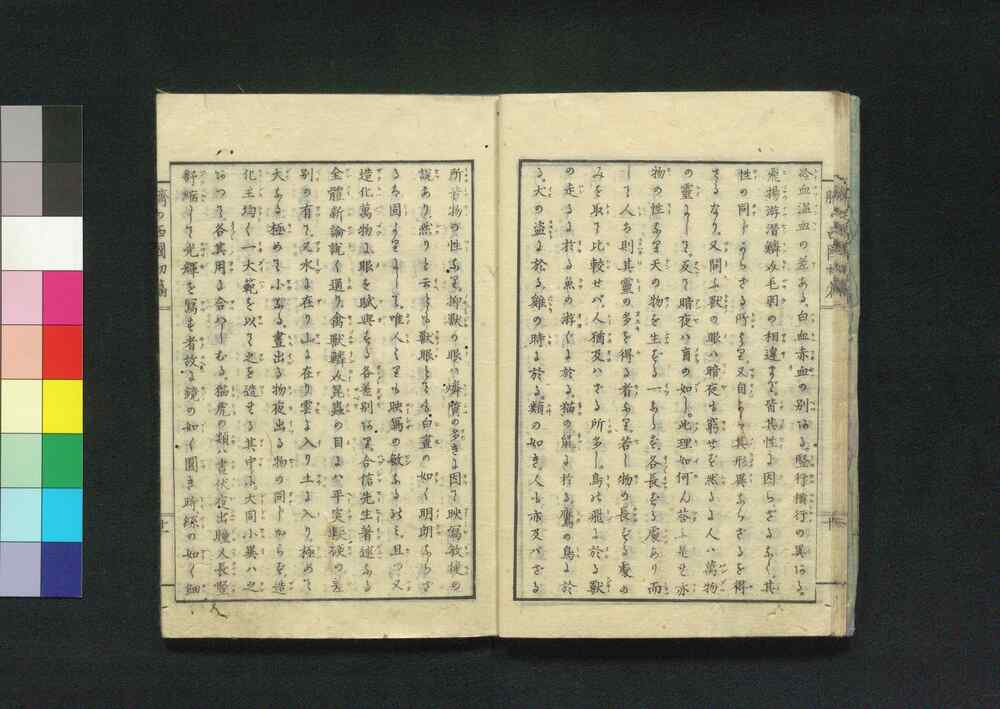 冷血温血の差ある、白血赤血の別ある、竪行横行の異ある、
飛揚游潜鱗介毛羽の相違まで、皆其性に因らざるなし、其
性の同じからざる所より、又自して其形異ならざるを得
ざるなり、又聞ふ獣の眼ハ暗夜も窮せず然るに人ハ萬物
の霊にして、反て暗夜ハ盲の如し、此理如何ん答ふ是も亦
物の性なり天の物を生ずる一ならず各長ずる處あり而
して人ハ則其霊の多を得る者なり若し物の長ずる處の
みを取て比較せバ、人猶及ハざる所多し、鳥の飛に於る獣
の走るに於る魚の游ぐに於る、猫の鼠に於る鷹の鳥に於
る、犬の盗に於る、雞の時に於る、類の如き、人も亦及バざる
所皆物の性なり、抑獣の眼ハ燐質の多きに因て映寫敏捷の
説あり然りと云とも獣眼とても白晝の如く明朗ならざ
る固よりにして、唯人よりも映寫の敏なるのミ、且つ又
造化萬物に眼を賦與する各差別あり合信先生著述なる
全體新論説く通り禽獣鱗介昆蟲の目にハ平突軟硬の差
別の有て、又水に在り山に在り雲に入り土に入り、極めて
大なる極めて小なる、晝出る物夜出る物の同じからを造
化主均く一大範を以て之を造せる其中に、大同小異ハ之
あつて、各其用に合やしむる、猫虎の類ハ晝伏夜出瞳人長竪
舒縮して光輝を寫す者故に鏡の如く圓き時線の如く細